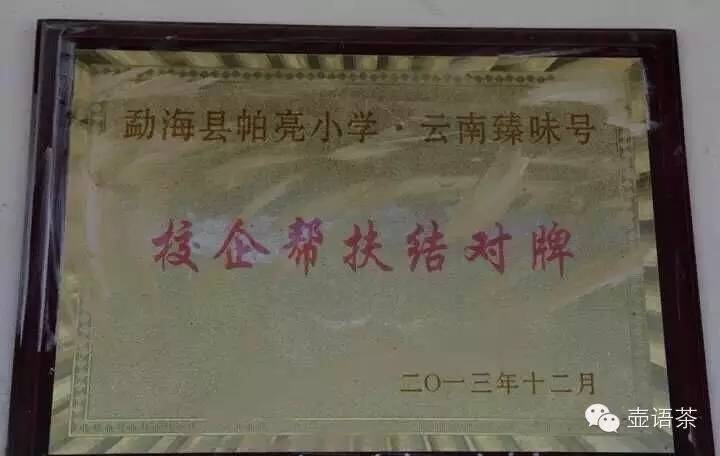 勐海县帕亮小学·云南臻味号
校企帮扶结对牌
二〇一三年十二月
壶语茶